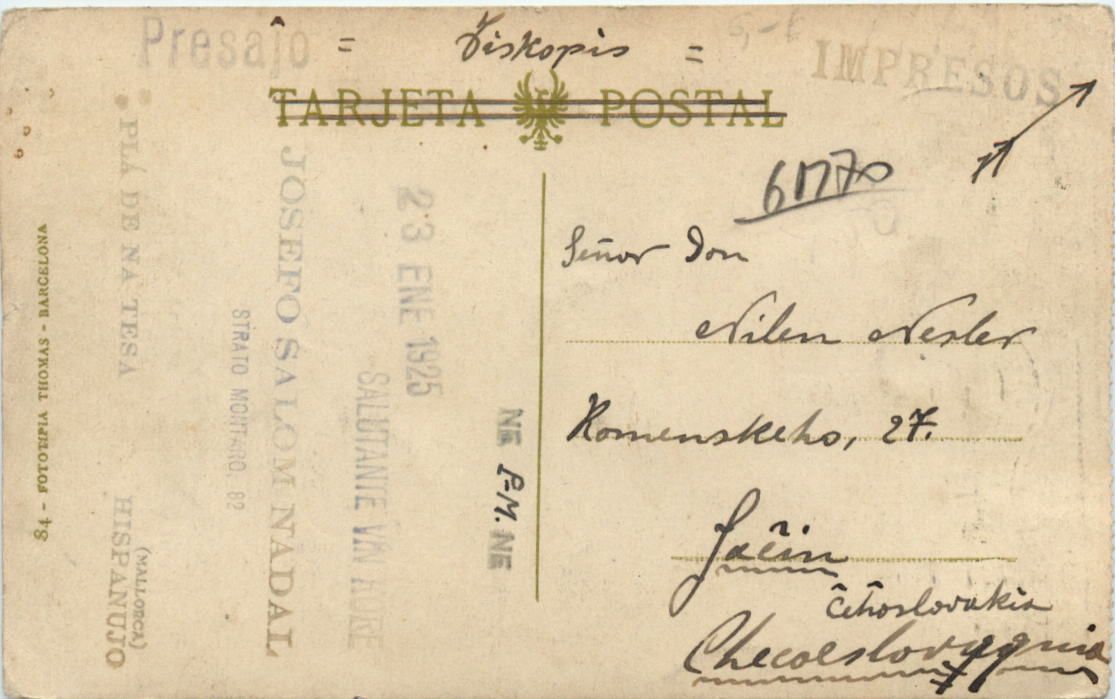 Presaĵo = Tiskopis =
IMPRESOS
TARJETA POSTAL
61770
Señor Don
Nesler
Komenskeho, 27.
Jačin
Ĉeĥoslovakia
Checoeslovaquia
NE P-M. NE
23 ENE 1925
SALUTANTE VIN KORE
JOSEFO SALOM NADAL
STRATO MONTARO. 82
PLÁ DE NA TESA
(MALLORCA)
HISPANUJO
84 - FOTOTIPIA THOMAS - BARCELONA